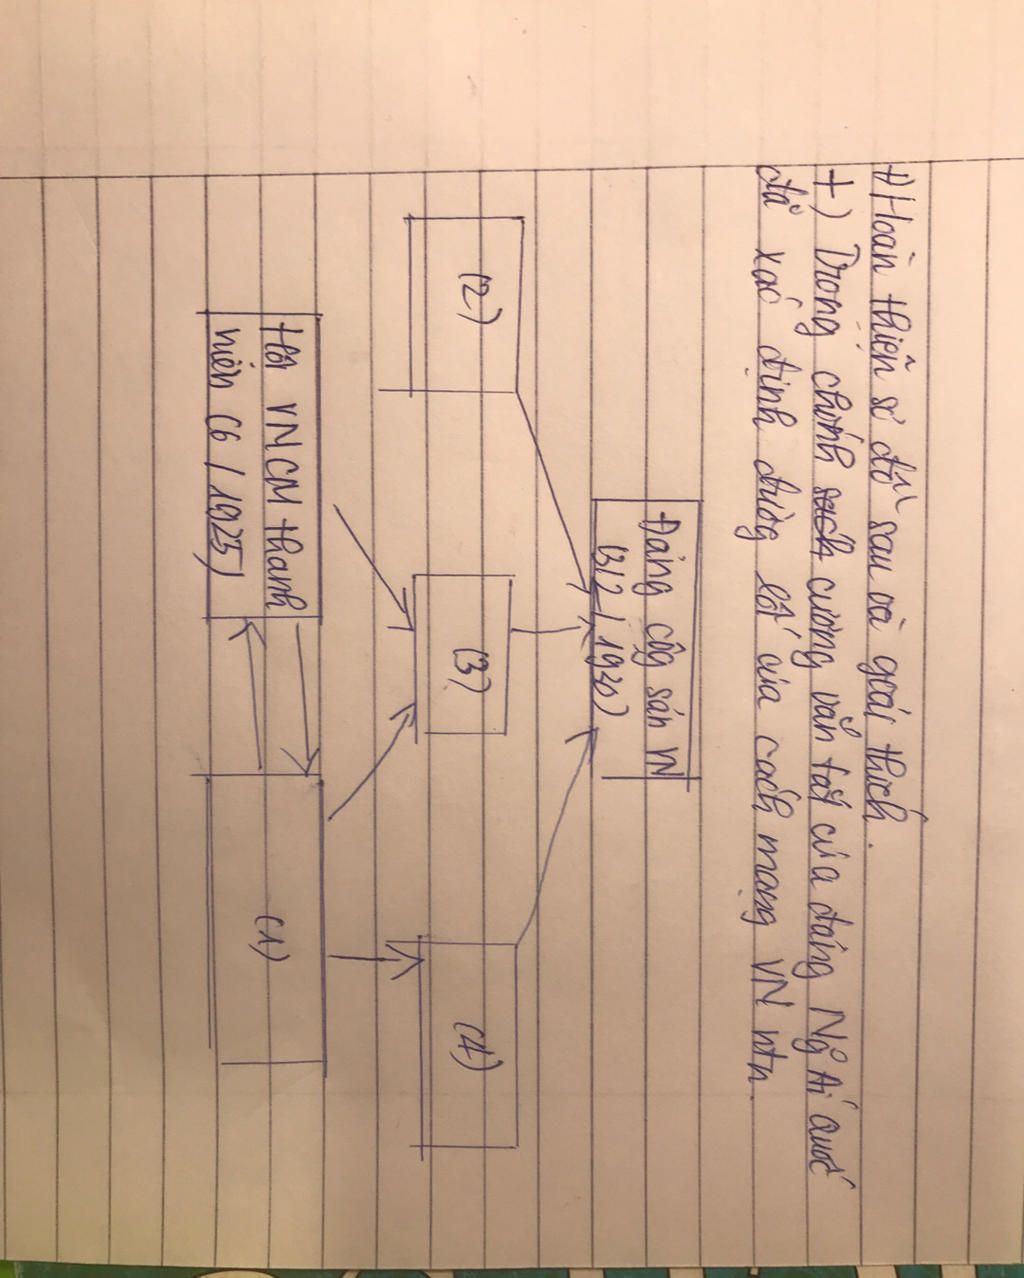 +) Hoàn thiện sơ đồ sau và giải thích.
+) Trong chính sách cương vắn tắt của đảng Ng Ái Quốc
đã xác định đường lối của cách mạng VN ntn.
Đảng cộg sản VN
(3/2/1930)
(2)
(3)
(4)
Hội VNCM thanh
niên (6/1925)
(1)